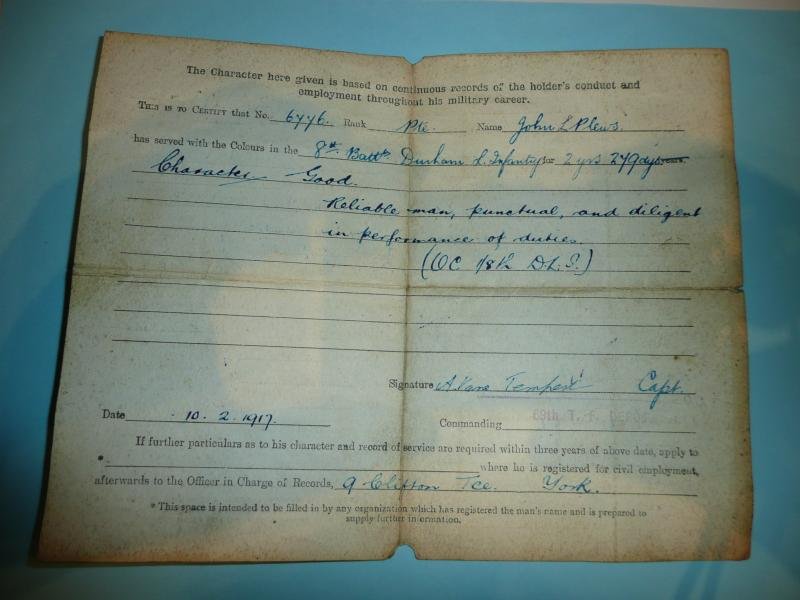 The Character here given is based on continuous records of the holder's conduct and
employment throughout his military career.
THIS IS TO CERTIFY that No. 6776. Rank Pte. Name John L Plews.
has served with the Colours in the 8th Battn. Durham L. Infantry for 2 yrs 279 dys years.
Character Good.
Reliable man, punctual, and diligent
in performance of duties.
(OC 1/8th D.L.I.)
Signature A Vane Tempest Capt.
Date 10. 2. 1917.
Commanding T. F. DEPOT
If further particulars as to his character and record of service are required within three years of above date, apply to
* where he is registered for civil employment,
afterwards to the Officer in Charge of Records, 9 Clifton Tce. York.
* This space is intended to be filled in by any organization which has registered the man's name and is prepared to
supply further information.